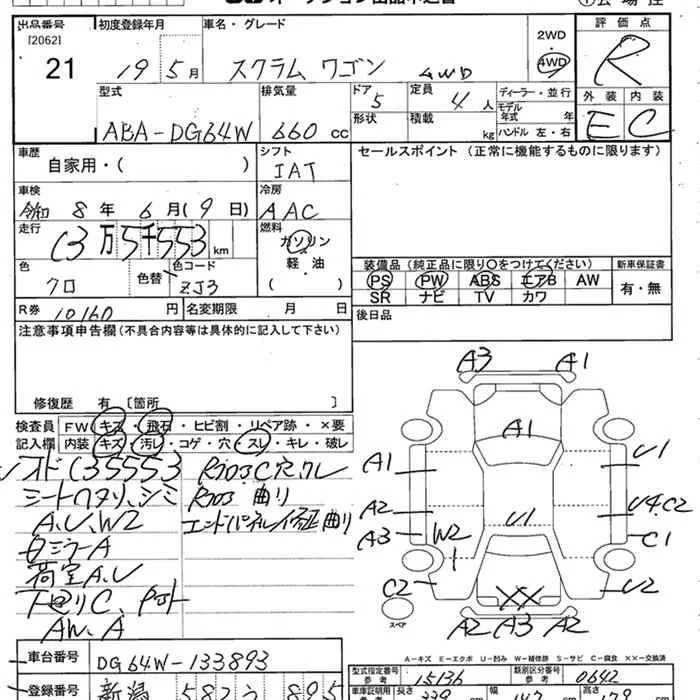 出品番号 初度登録年月 車名・グレード 評価点
[2062] 2WD
21 19 5月 スクラム ワゴン 4WD 4WD R
型式 排気量 ドア 定員 ディーラー・並行 外装 内装
5 4人 モデル年式 年
ABA-DG64W 660 cc 形状 積載 kg ハンドル 左・右 E C
車歴 シフト セールスポイント(正常に機能するものに限ります)
自家用・( ) IAT
車検 冷房
令和 8年 6月(9日) AAC
走行 燃料
(3万5千553 km ガソリン
軽・油
( )
色 色替 色コード 装備品(純正品に限り○をつけてください) 新車保証書
クロ ZJ3 PS PW ABS エアB AW 有・無
SR ナビ TV カワ
R券 10160 円 名変期限 月 日 後日品
注意事項申告欄(不具合内容等は具体的に記入して下さい)
修復歴 有〔箇所 〕
検査員 FW キズ・飛石・ヒビ割・リペア跡・×要
記入欄 内装 キズ・汚レ・コゲ・穴・スレ・キレ・破レ
シートヘタリ、シミ
曲リ
A、U、W2
ミラーA
荷室A、U
AW、A
A3 A1
A1
A1 U1
A2 U1 U4.C2
A3 W2 C1
C2 XX U2
スペア
A2 A3 A2
A-キズ E-エクボ U-凹み W-補修跡 S-サビ C-腐食 XX-交換済
車台番号 DG64W-133893
型式指定番号 参考 15136 類別区分番号 参考 0642
登録番号 新潟 582 う 895
車庫証明用 参考 長さ 339 cm 幅 147 cm 高さ 179 cm